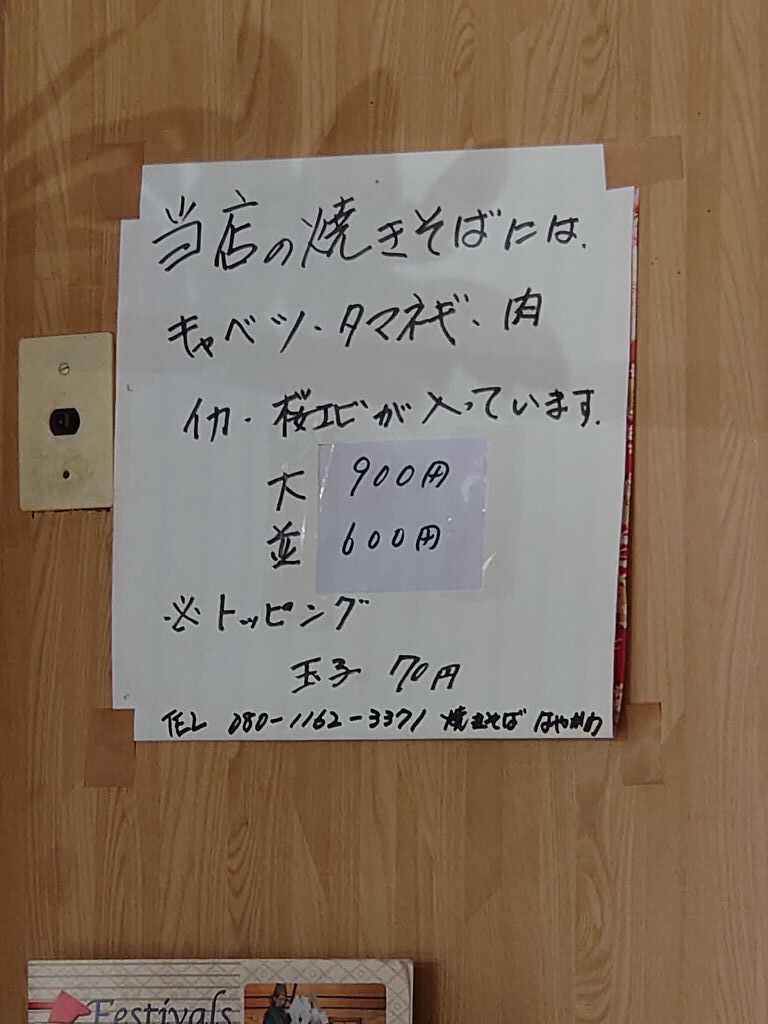 当店の焼きそばには、
キャベツ・タマネギ、肉
イカ・桜エビが入っています。
大 900円
並 600円
※トッピング
玉子 70円
TEL 080-1162-3371 焼きそば はやかわ
Festivals